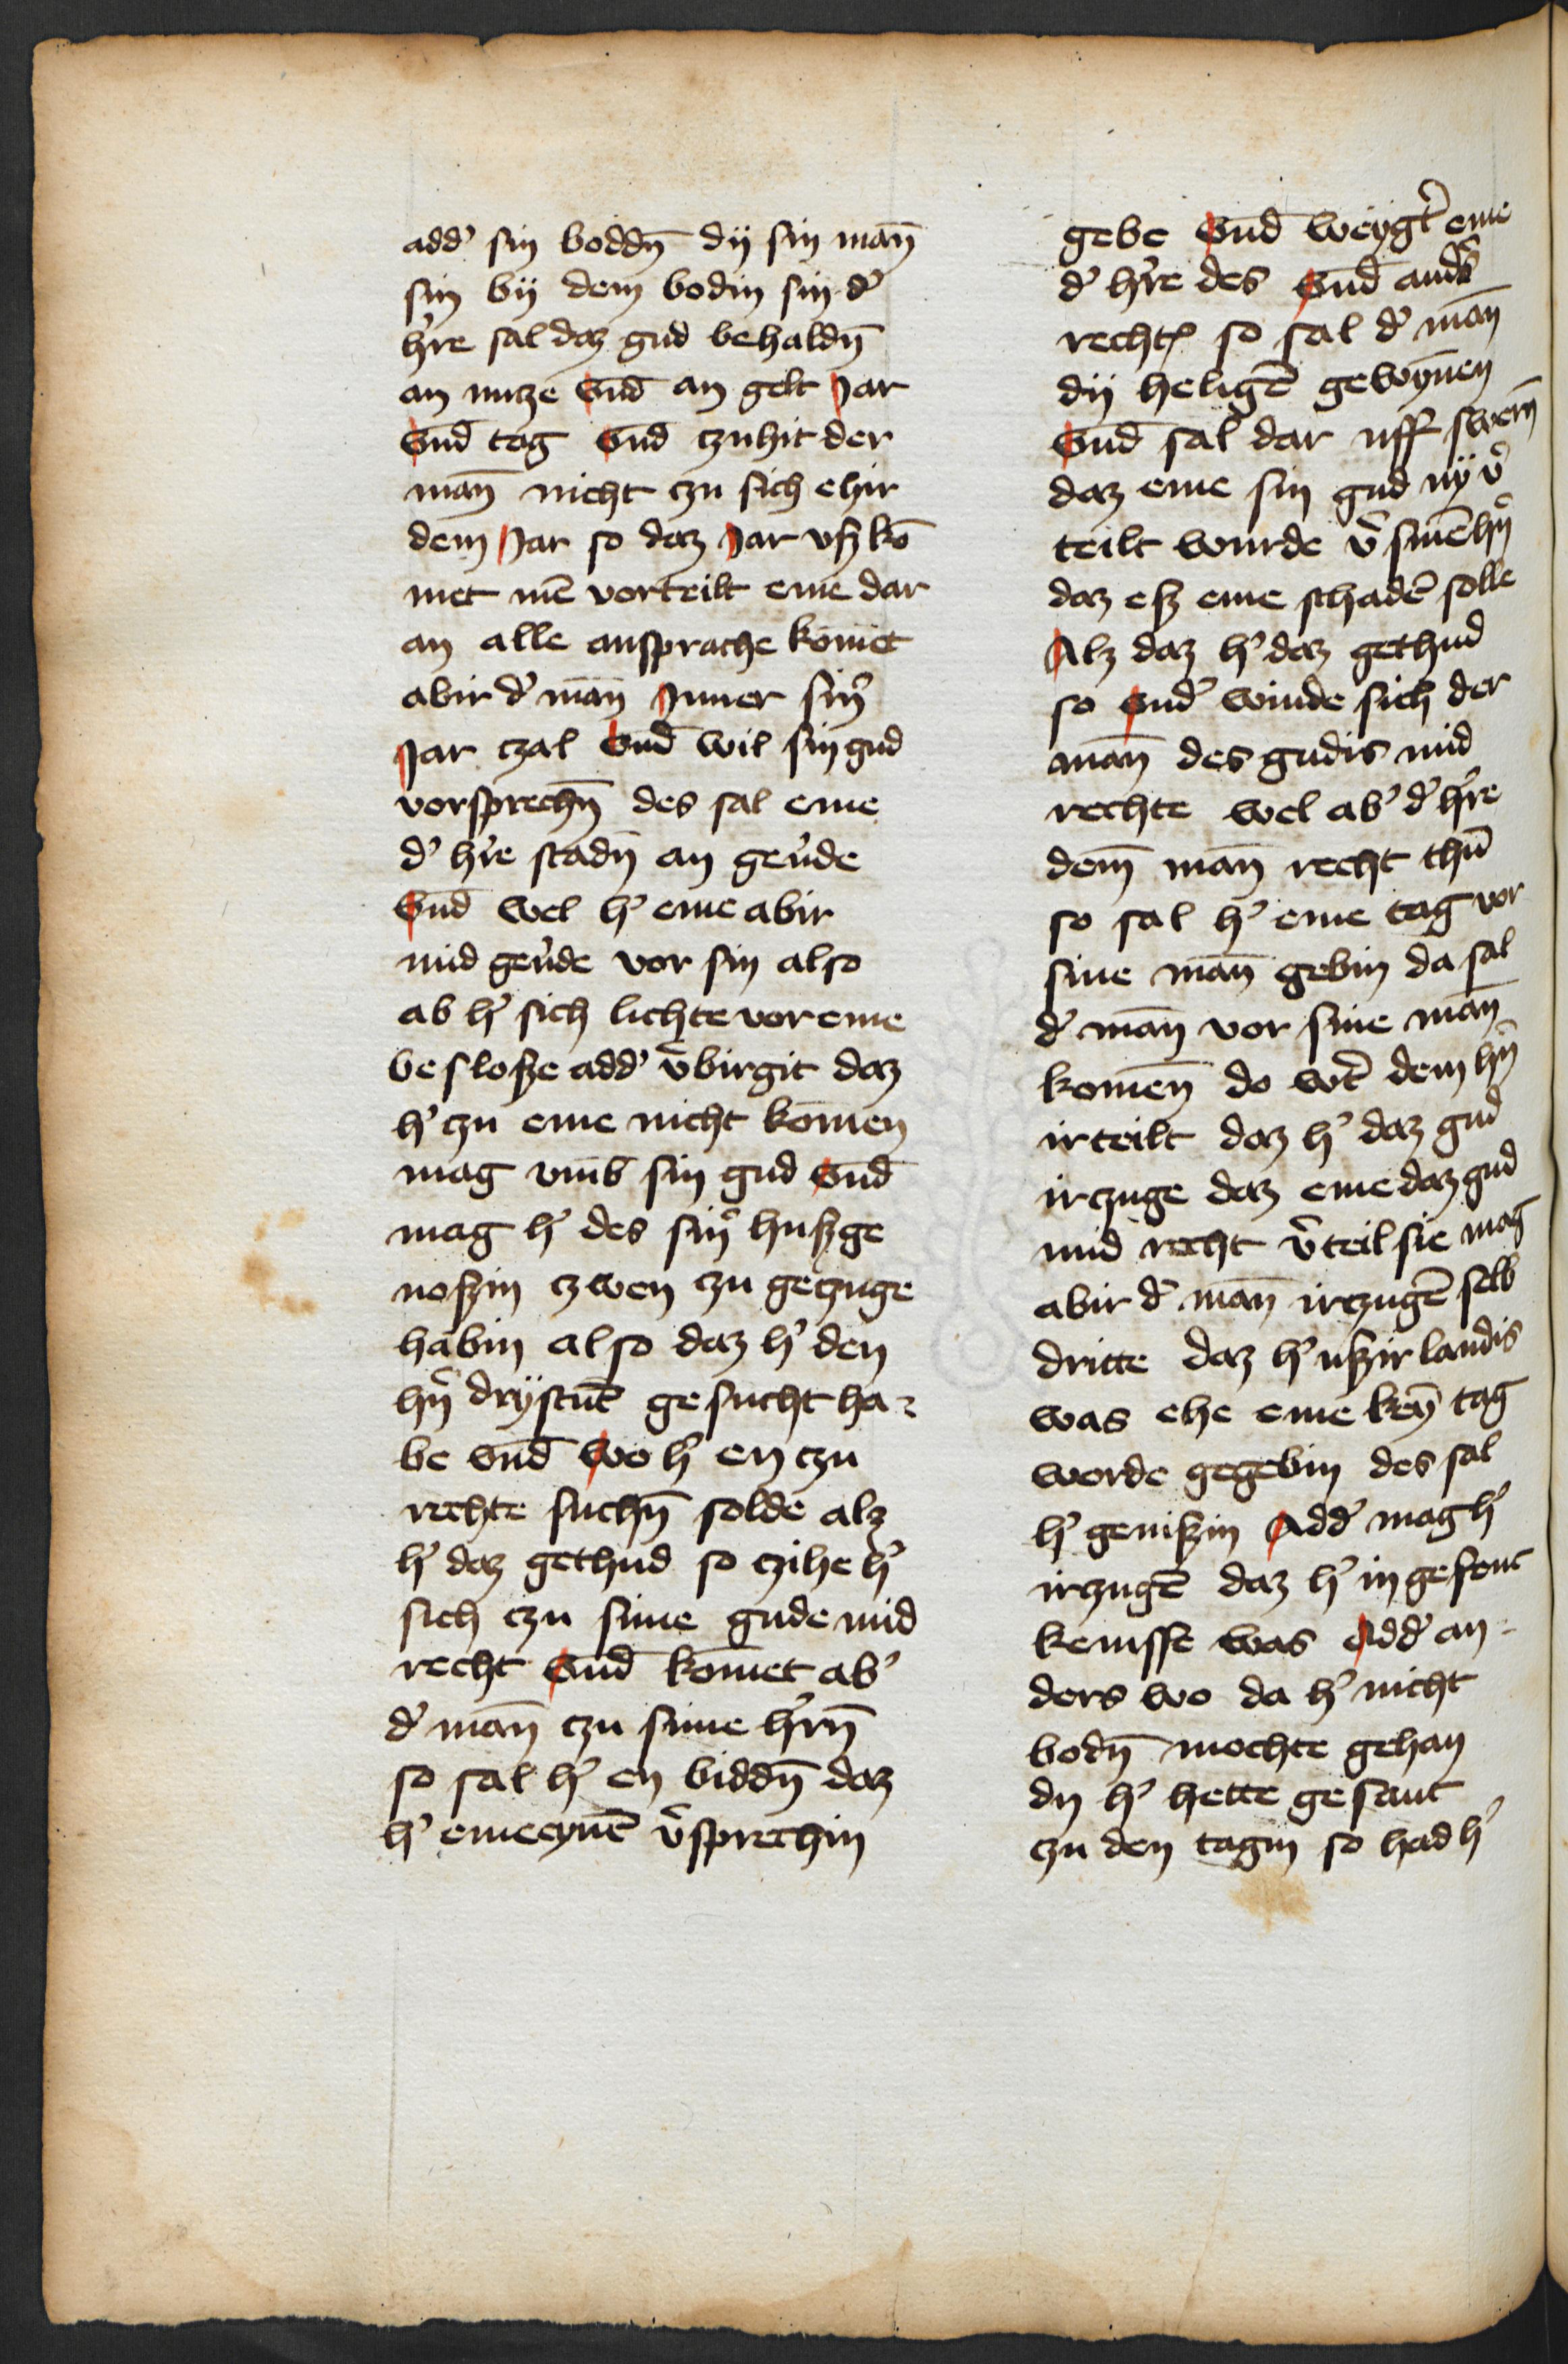 add' sin boddn̄ dij sin man̄
sin bij dem bodin sin d'
h're sal daz gud behaldn̄
an nutze vnd̄ an gelt Jar
vnd̄ tag vnd̄ czuhit der
man̄ nicht czu sich ehir
dem Jar so daz Jar vsz kō
met mē vorteilt eme dar
an alle ansprache kōmet
abir d' man̄ Jnner sin'
Jar czal vnd̄ wil sin gud
vorsprechn̄ des sal eme
d' h're stadn̄ an geu'de
vnd̄ wel h' eme abir
mid geu'de vor sin also
ab h' sich lichte vor eme
beslosze add' v'birgit daz
h' czu eme nicht kōmen
mag vm̄b sin gud vnd̄
mag h' des sin' huszge
noszin czwen czu geczuge
habin also daz h' den
hn̄' drijstūt gesucht ha-
be vnd̄ wo h' en czu
rechte suchn̄ solde alz
h' daz gethud so czihe h'
sich czu sime gude mid
recht vnd̄ kōmet ab'
d' man̄ czu sime h'rn̄
so sal h' en biddn̄ daz
h' eme eynē v'sprechin
gebe vnd̄ weygt' eme
d' h're des vnd̄ and's
recht so sal d' man̄
dij heligē gewynnen
vnd̄ sal dar uff swern̄
daz eme sin gud nij v'
teilt wurde v' sinē hn'
daz esz eme schadē solle
Alz daz h' daz gethud
so vnd' winde sich der
man̄ des gudis mid
rechte wel ab' d' h're
dem̄ man̄ recht thū
so sal h' eme tag vor
sine man̄ gebin da sal
d' man̄ vor sine man̄
komen̄ do wt' dem hn'
irteilt daz h' daz gud
irczuge daz eme daz gud
mid recht v'teil sie mag
abir d' man̄ irczugē selb
dritte daz h' uszir landis
was ehe eme keyn̄ tag
worde gegebin des sal
h' geniszin Add' mag h'
irczugē daz h' in gefenc
kenisse was Add' an-
ders wo da h' nicht
bodn̄ mochte gehan
dn h' hette gesant
czu den tagin so had h'